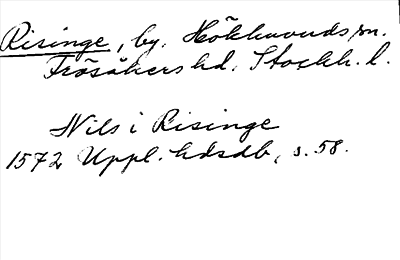 Risinge, by, Hökhuvuds sn.
Frösåkers hd. Stockh. l.
Nils i Risinge
1572 Uppl. hdsdb, s. 58.